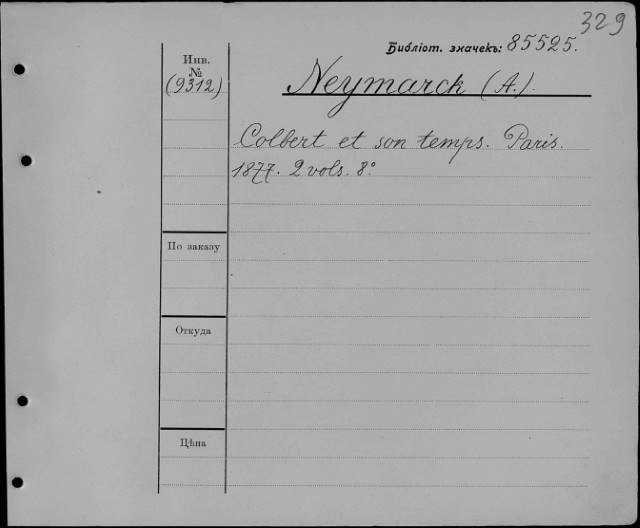 329
Библіот. значекъ: 85525.
Инв.
№
(9312)
Neymarck (A.).
Colbert et son temps. Paris.
1877. 2 vols. 8°
По заказу
Откуда
Цѣна